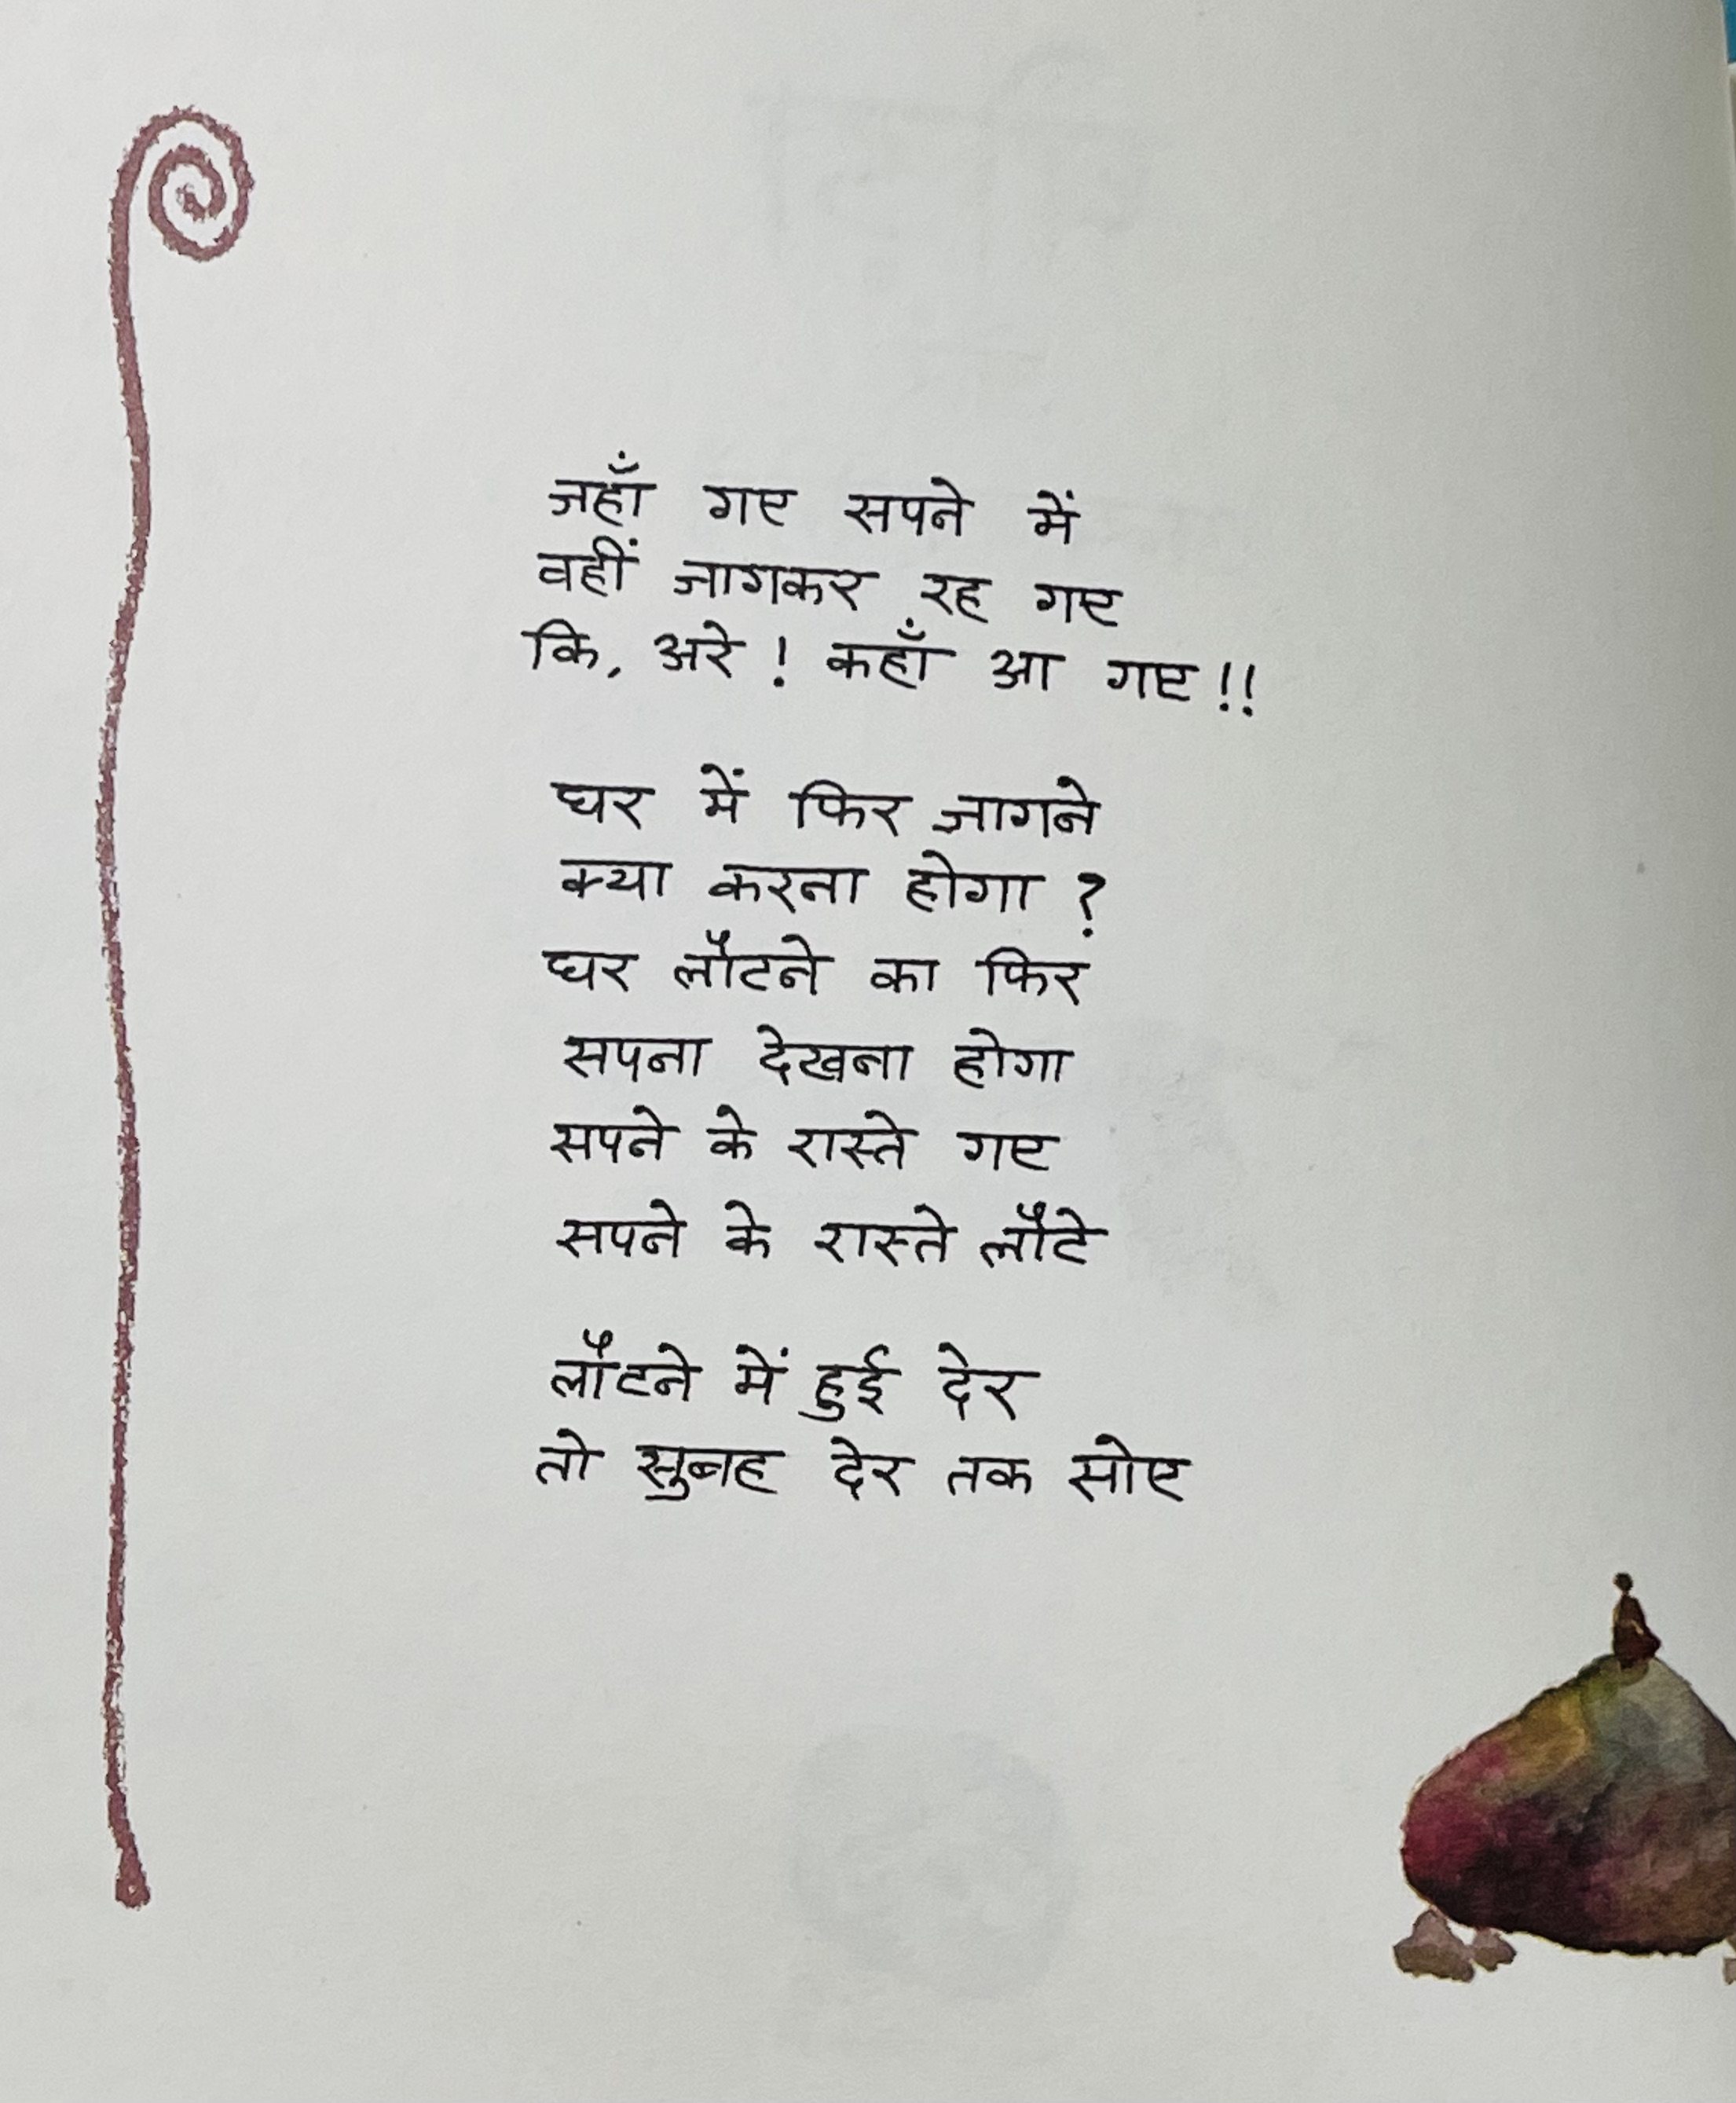 जहाँ गए सपने में
वहीं जागकर रह गए
कि, अरे ! कहाँ आ गए !!
घर में फिर जागने
क्या करना होगा ?
घर लौटने का फिर
सपना देखना होगा
सपने के रास्ते गए
सपने के रास्ते लौटे
लौटने में हुई देर
तो सुबह देर तक सोए